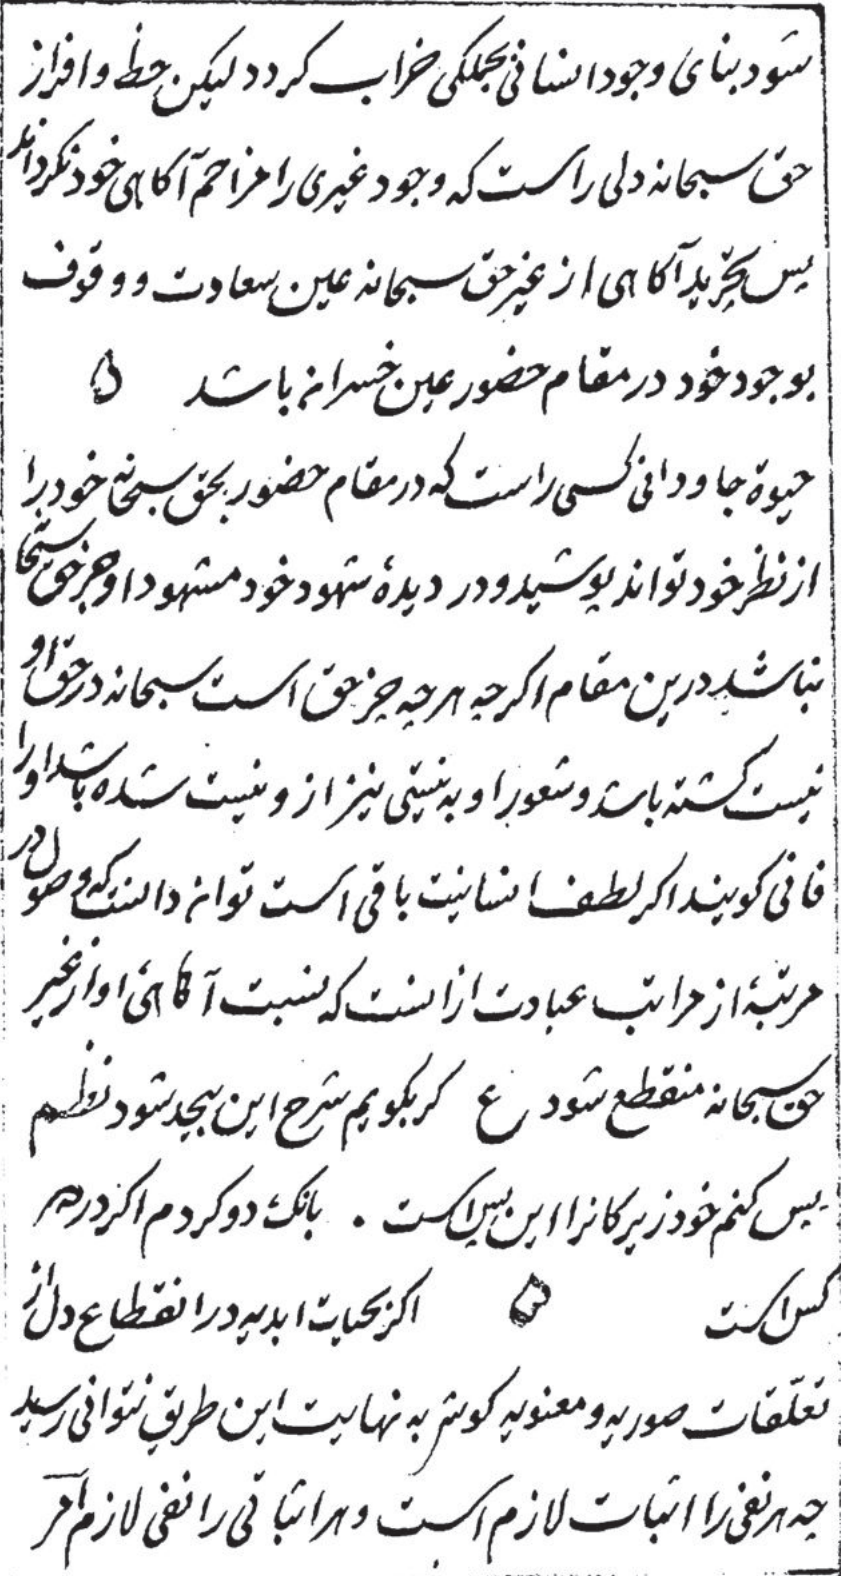 شود بنای وجود انسانی بجملکی خراب کردد لیکن حظ وافر از
حق سبحانه دلی راست که وجود غیری را مزاحم آکاهی خود نکرداند
پس تجرید آکاهی از غیر حق سبحانه عین سعادت و وقوف
بوجود خود در مقام حضور عین خسران باشد ۵
حیوة جاودانی کسی راست که در مقام حضور بحق سبحانه خود را
از نظر خود تواند پوشید و در دیدهٔ شهود خود مشهود او جز حق سبحا
نباشد درین مقام اکرچه هرچه جز حق است سبحانه در حق او
نیست کشته باشد و شعور او به نیستی نیز از و نیست شده باشد او را
فانی کویند اکر لطف انسانیت باقی است توان دانست که وصول در
مرتبهٔ از مراتب عبادت ازانست که نسبت آکاهیٔ او از غیر
حق سبحانه منقطع شود ع کر بکویم شرح این بیحد شود نظم
بس کنم خود زیرکانرا این بس است . بانک دو کردم اکر در ده
کس است ۵ اکر بحیات ابدیه در انقطاع دل از
تعلّقات صوریه و معنویه کوشر به نهایت این طریق نتوانی رسید
چه هر نفی را اثبات لازم است و هر اثباتی را نفی لازم آمر